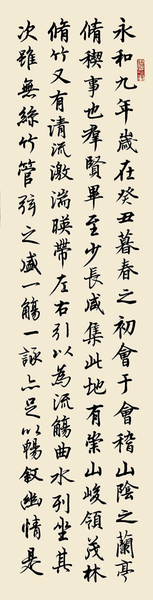 永和九年歲在癸丑暮春之初會于會稽山陰之蘭亭
脩稧事也羣賢畢至少長咸集此地有崇山峻領茂林
脩竹又有清流激湍暎帶左右引以為流觴曲水列坐其
次雖無絲竹管弦之盛一觴一詠亦足以暢敘幽情是